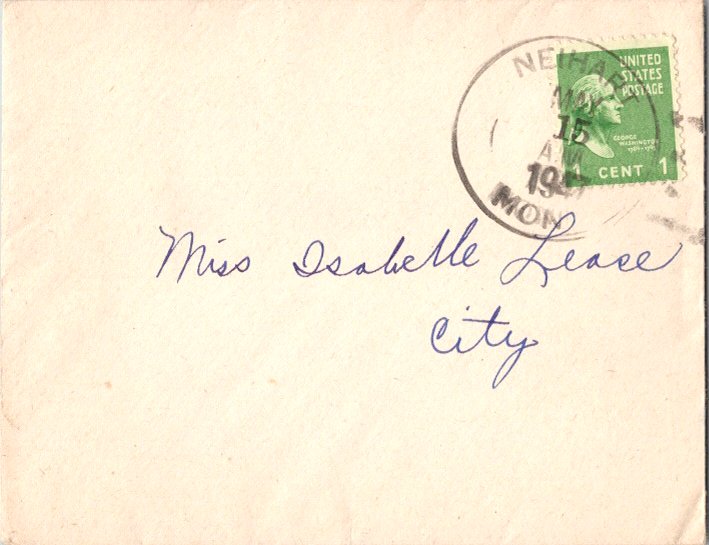 NEIHART
MAY
15
AM
1947
MONT
UNITED
STATES
POSTAGE
GEORGE
WASHINGTON
1789-1797
1 CENT 1
Miss Isabelle Lease
City